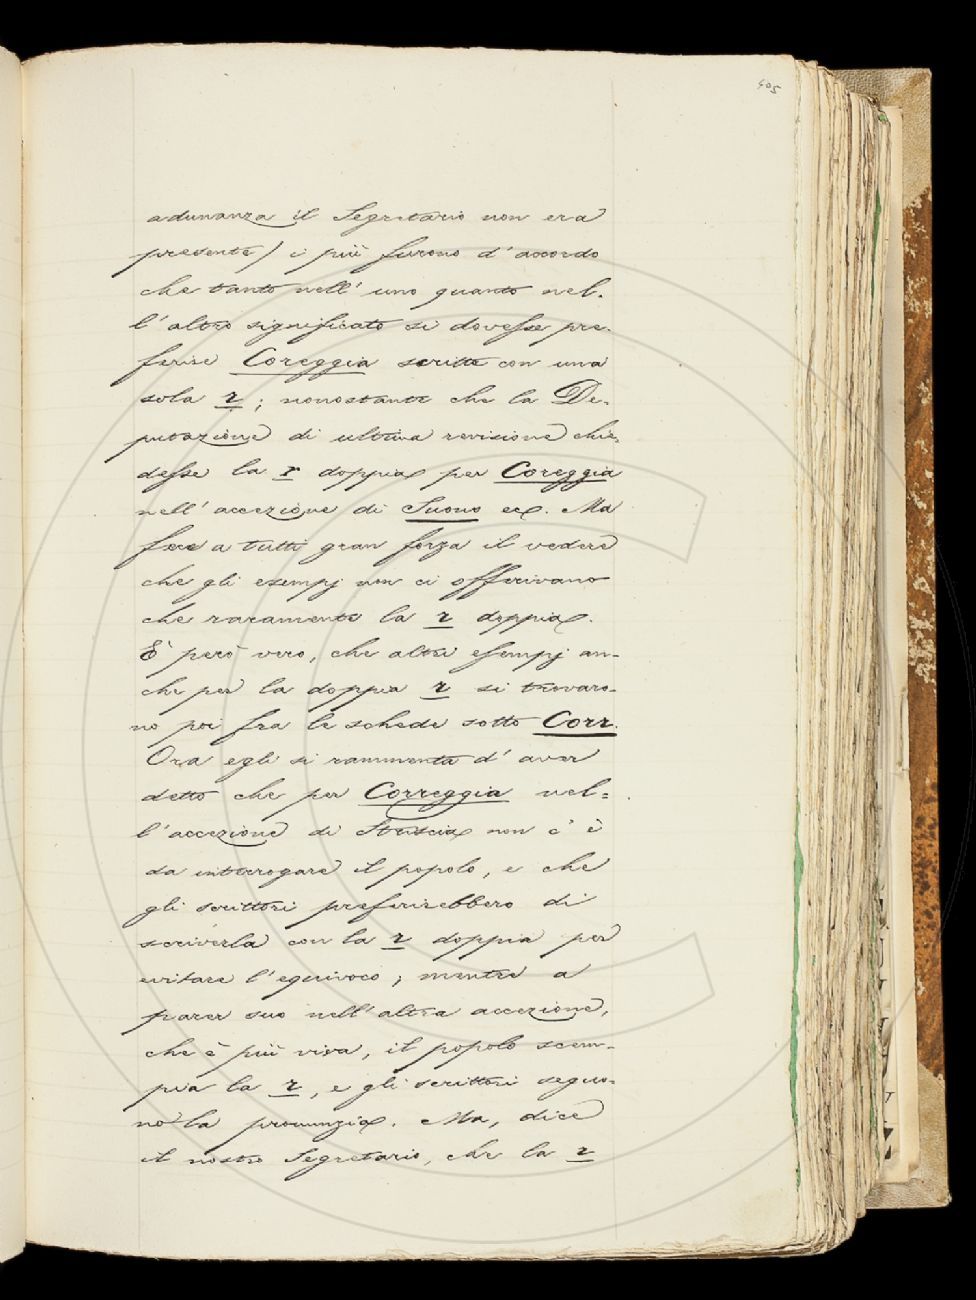 405
adunanza il Segretario non era
presente) i più furono d'accordo
che tanto nell'uno quanto nel-
l'altro significato si dovesse pre-
ferire Coreggia scritta con una
sola r; nonostante che la De-
putazione di ultima revisione chie-
desse la r doppia per Coreggia
nell'accezione di Suono ec. Ma
fece a tutti gran forza il vedere
che gli esempj non ci offerivano
che raramente la r doppia.
È però vero, che altri esempj an-
che per la doppia r si trovaro-
no poi fra le schede sotto Corr.
Ora egli si rammenta d'aver
detto che per Correggia nel-
l'accezione di Striscia non c'è
da interrogare il popolo, e che
gli scrittori preferirebbero di
scriverla con la r doppia per
evitare l'equivoco; mentre a
parer suo nell'altra accezione,
che è più viva, il popolo scem-
pia la r, e gli scrittori seguo-
no la pronunzia. Ma, dice
il nostro Segretario, che la r